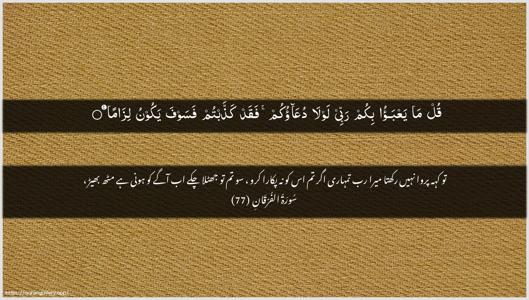 قُلْ مَا يَعْبَـؤُا بِكُمْ رَبِّىْ لَوْلَا دُعَآؤُكُمْ ۚ فَقَدْ كَذَّبْتُمْ فَسَوْفَ يَكُوْنُ لِزَامًا
تو کہہ پروا نہیں رکھتا میرا رب تمہاری اگر تم اس کو نہ پکارا کرو، سو تم تو جھٹلا چکے اب آگے کو ہونی ہے مٹھ بھیڑ،
سُورَةُ الفُرقَانِ (77)